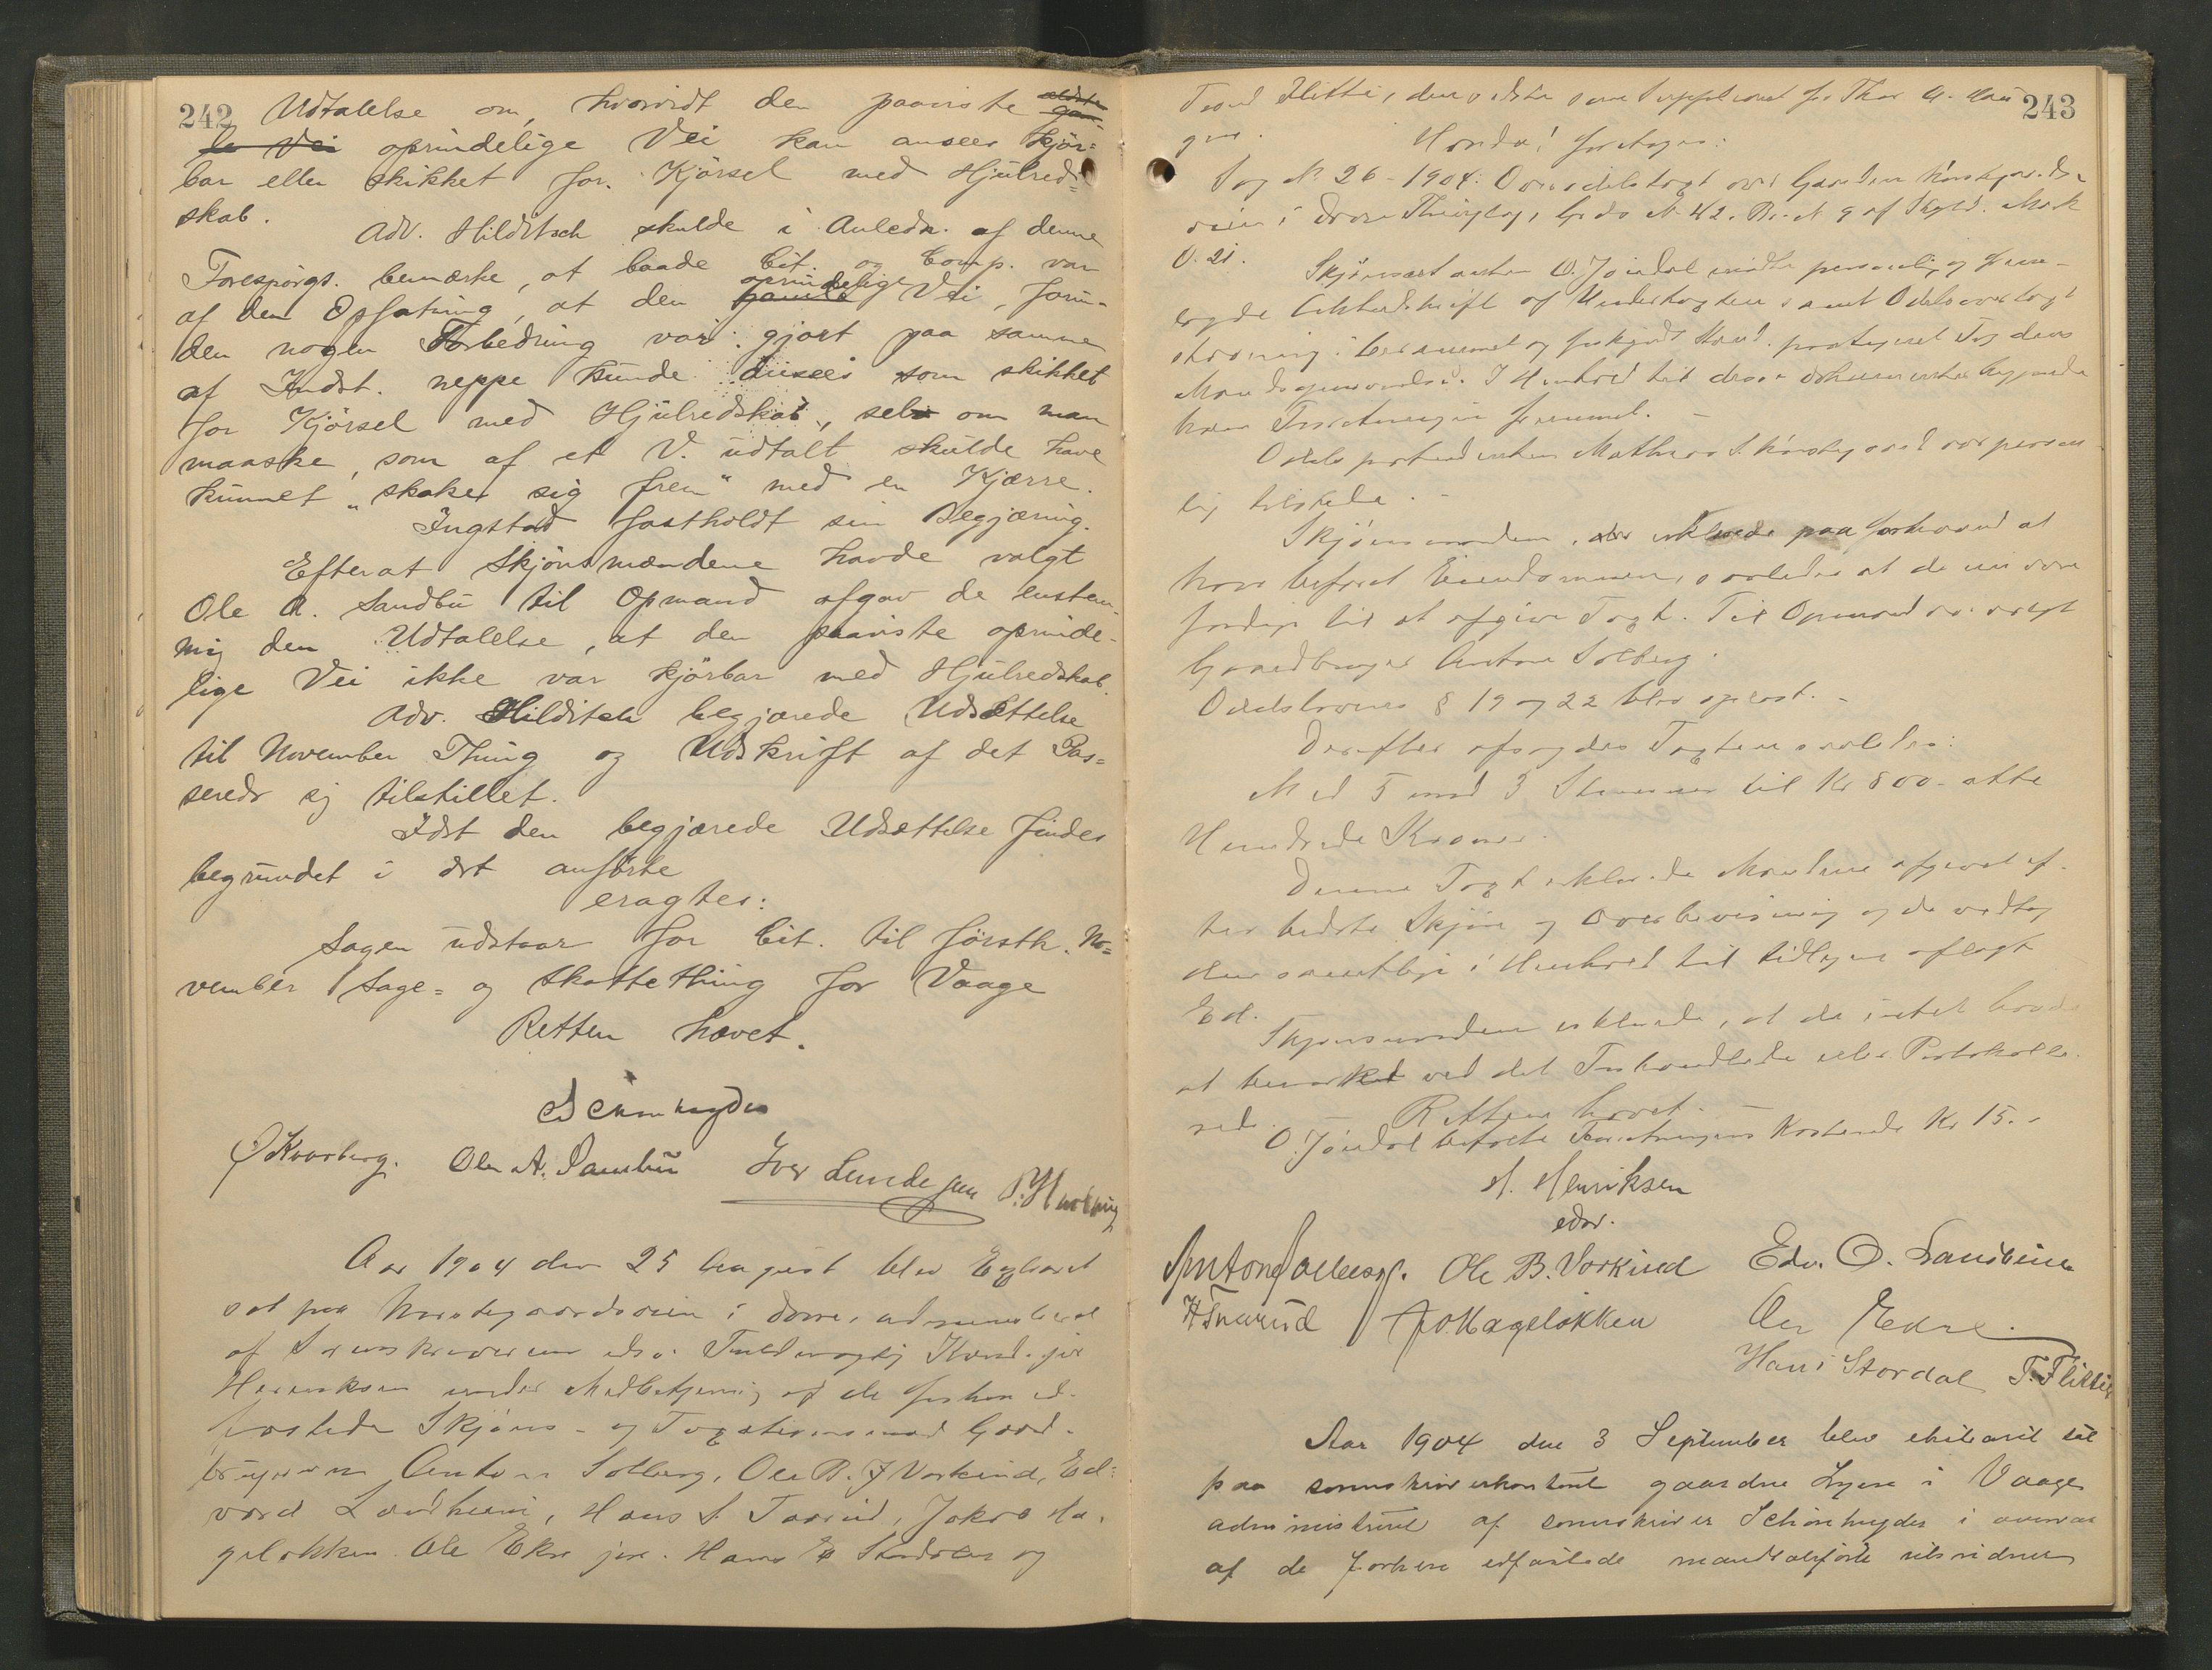 242
Udtalelse om, hvorvidt den paaviste ældste gam-
le Vei oprindelige Vei kan ansees kjør=
bar eller skikket for Kjørsel med Hjulred=
skab.
Adv. Hilditsch skulde i Anledn. af denne
Forespørgs. bemærke, at baade Cit. og Comp. var
af den Opfatning, at den gamle oprindelige Vei, forin-
den nogen Forbedring var gjort paa samme
af Indst. neppe kunde ansees som skikket
for Kjørsel med Hjulredskab, selv om man
maaske, som af et V. udtalt skulde have
kunnet "skake sig frem" med en Kjærre.
Ingstad fastholdt sin Begjæring.
Efterat Skjønsmændene havde valgt
Ole A. Sandbu til Opmand afgav de enstem-
mig den Udtalelse, at den paaviste oprinde-
lige Vei ikke var kjørbar med Hjulredskab.
Adv. Hilditsch begjærede Udsættelse
til November Thing og Udskrift af det Pas=
serede sig tilstillet.
Idet den begjærede Udsættelse findes
begrundet i det anførte
eragtes:
Sagen udstaar for Cit. til førsth. No=
vember Sage= og Skattething for Vaage
Retten hævet.
Schønheyder
Ø Kvarberg. Ole A. Sandbu Iver Lunde
Aar 1904 den 25 August blev Extraret
sat paa i Dovre, administreret
af Sorenskriveren ved Fuldmægtig
Henriksen under Medbetjening af de forhen ed-
fæstede Skjøns- og Taxationsmænd Gaard-
brugerne Anton Solberg, Ole B. Vorkind, Ed-
vard Landheim, Hans Taarud, Jakob Ha-
geløkken. Ole Ekre jr. Hans Stordal og
243
Flitti, den sidste som Suppleant for Thor
Hvorda! foretoges:
Sag N. 26 - 1904: Odelstaxt over Gaarden
i Dovre Thinglag, Gards N. 42. Br. N 9 af Skyld. Mark
0.21.
O. Jøndal mødte personlig og frem-
lagde
Mænds I Henhold til disse Dokumenter begjærede
han Forretningen fremmet. -
Odelspretendenten Mathias var person-
lig tilstede. -
Skjønsmændene, der erklærede paa Forhaand at
have befaret Eiendommen, saaledes at de nu vare
færdige til at afgive Taxt. Til Opmand var valgt
Gaardbruger Anton Solberg.
Odelslovens § 19 og 22 blev oplæst. -
Derefter afsagdes Taxten saaledes:
Med 5 mod 3 Stemmer til Kr 800 - otte
Hundrede Kroner.
Denne Taxt erklærede Mændene afgivet ef-
ter bedste Skjøn og Overbevisning og de vedtog
den samtlige i Henhold til tidligere aflagt
Ed.
Skjønsmændene erklærede, at de intet havde
at bemærke ved det Forhandlede eller Protokolle-
rede.
Retten hævet. -
O. Jøndal betalte Forretningens Kostende Kr 15. -
H. Henriksen
edsv.
Anton Solberg. Ole B. Vorkind Edv. O. Landheim
H Taarud J. O. Hageløkken Ole Ekre.
Hans Stordal T. Flittie
Aar 1904 den 3 September blev extraret sat
paa sorenskriverkontoret gaarden Lyen i Vaage
administreret af sorenskriver Schønheyder i overvær
af de forhen edfæstede mandtalsførte retsvidner